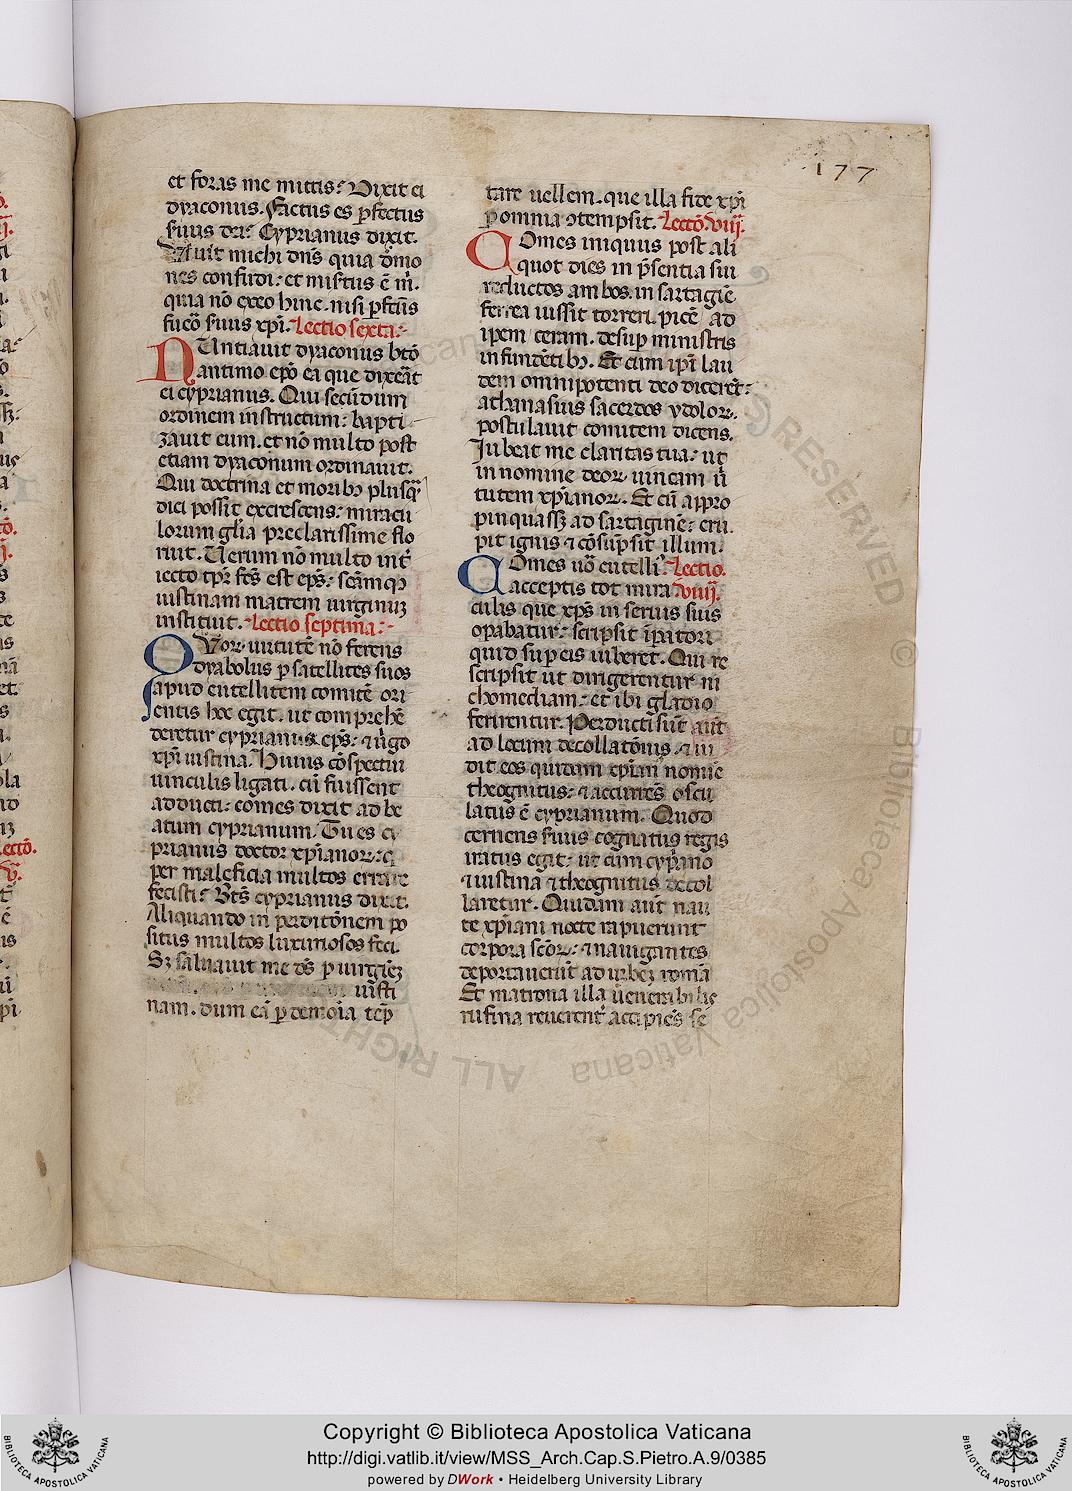 177
et foras me mittis? Dixit ei
dyaconus. Factus es p̱fectus
filius dei? Cyprianus dixit.
Viuit michi dn̄s quia dōmo
nes confudi: et mistus ē m̄.
quia nō exeo hinc. nisi p̱fctūs
fuero filius xp̄i. Lectio sexta:
NUntiauit dyaconus btō
antimo ep̄o ea que dixeāt
ei cyprianus. Qui secūdum
ordinem instructum: bapti
zauit eum. et nō multo post
etiam dyaconum ordinauit.
Qui doctrina et moribꝫ plusq̄
dici possit excrescens: miracu
lorum gl̄ia preclarissime flo
ruit. Uerum nō multo int̄
iecto tp̄r fc̄s est ep̄s: scāmqꝫ
iustinam matrem uirginuꝫ
instituit. Lectio septima:
QVoꝝ uirtutē nō ferens
dyabolus p̱ satellites suos
apud eutellitem comitē ori
entis hoc egit. ut comprehē
deretur cyprianus ep̄s: ⁊ uḡo
xp̄i iustina. Huius cōspectui
uinculis ligati. cū fuissent
adducti: comes dixit ad be
atum cyprianum. Tu es cy
prianus doctor xp̄ianoꝝ: q
per maleficia multos errare
fecisti? Bt̄s cyprianus dixit.
Aliquando in perditōnem po
situs multos luxuriosos feci.
Sꝫ saluauit me ds̄ p̱ uirgiēꝫ
iusti
nam. dum eā p̱ demōia tēp̱
tare uellem. que illa fide xp̄i
p̱ omnia ꝯtempsit. Lectō. viij.
COmes iniquus post ali
quot dies in p̄sentia sui
reductos ambos. in sartagiē
ferrea iussit torreri. picē ad
ipem ceram. desup̱ ministris
infundētibꝫ. Et cum ip̄i lau
dem omnipotenti deo dicerēt:
athanasius sacerdos ydoloꝝ.
postulauit comitem dicens.
Iubeat me claritas tua: ut
in nomine deoꝝ uincam ū
tutem xp̄ianoꝝ. Et cū appro
pinquassꝫ ad sartaginē: eru
pit ignis ⁊ cōsūpsit illum.
COmes uō eutelliꝰ Lectio.
acceptis tot mira viiij.
culis que xp̄s in seruis suis
opabatur: scripsit ip̄atori
quid sup̱ eis iuberet. Qui re
scripsit ut dirigerentur ni
chomediam: et ibi gladio
ferirentur. Perducti sūt aūt
ad locum decollatōnis. ⁊ ui
dit eos quidam xp̄ian̄ nomīe
theognitus: ⁊ accurrēs oscu
latus ē cyprianum. Quod
cernens filius cognatus regis
iratus egit: ut cum cyp̄ano
⁊ iustina ⁊ theognitus decol
laretur. Quidam aūt nau
te xp̄iani nocte rapuerunt
corpora scōꝝ: ⁊ nauigantes
deportauerūt ad urbeꝫ romā
Et matrona illa uenerabilis
rufina reuerent̄ accipiēs se
RESERVED © Biblioteca Apostolica Vaticana ALL RIGHTS
Copyright © Biblioteca Apostolica Vaticana
http://digi.vatlib.it/view/MSS_Arch.Cap.S.Pietro.A.9/0385
powered by DWork • Heidelberg University Library
BIBLIOTECA APOSTOLICA VATICANA
BIBLIOTECA APOSTOLICA VATICANA